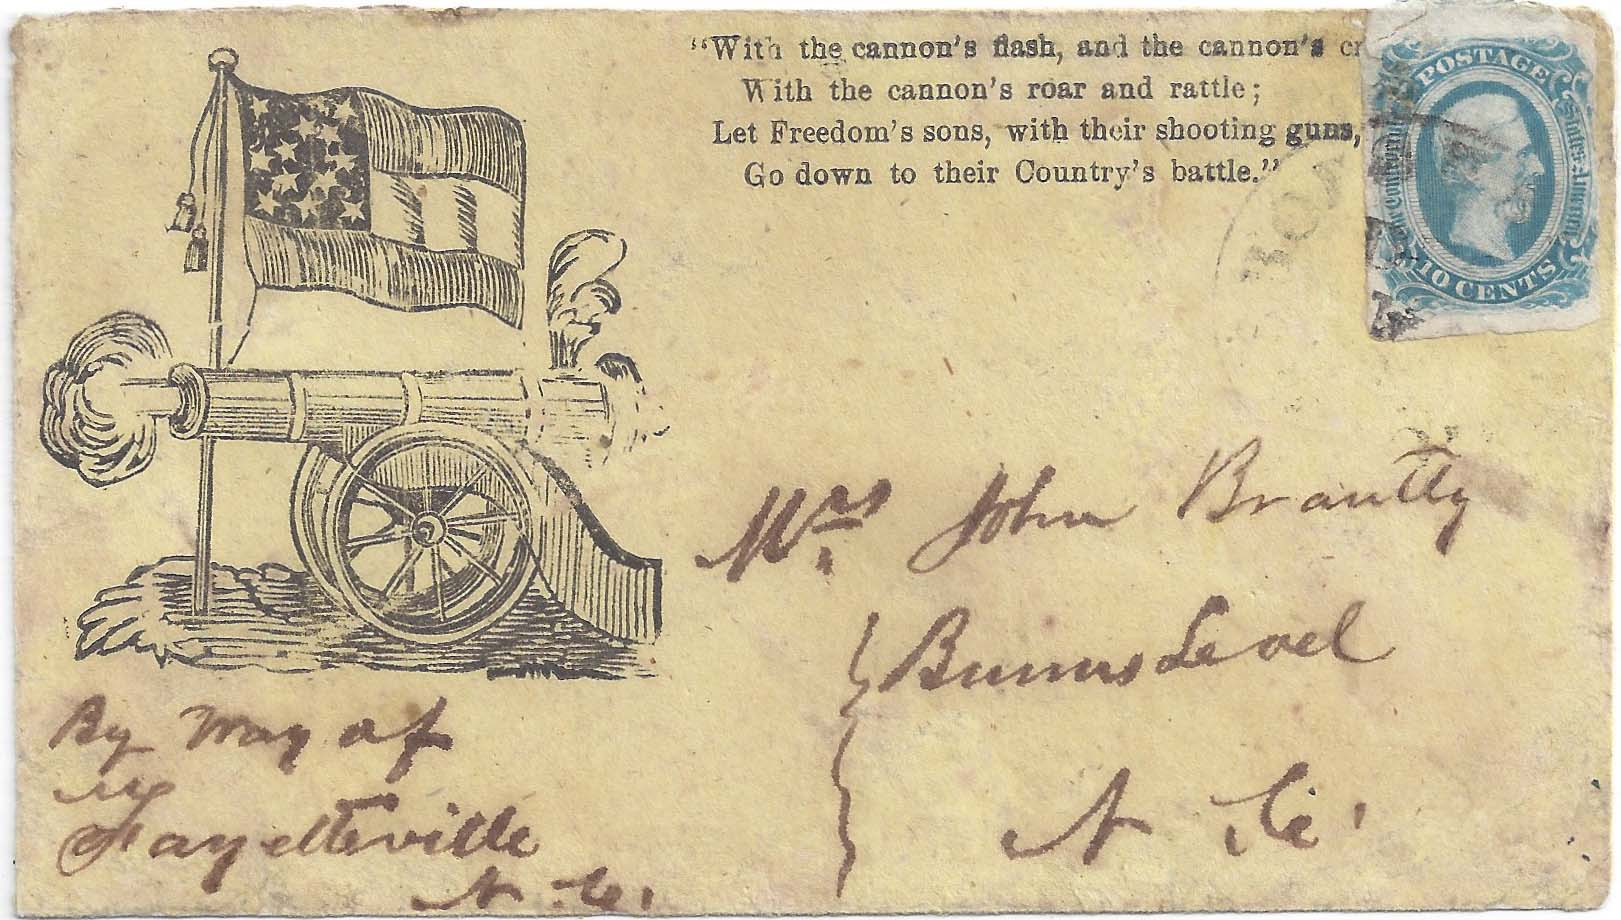 “With the cannon's flash, and the cannon's
With the cannon's roar and rattle;
Let Freedom's sons, with their shooting guns,
Go down to their Country's battle.”
POSTAGE
The Confederate States of America
10 CENTS
Mrs John Brantly
Bunns Level
N. C.
By Way of
Fayetteville
N. C.